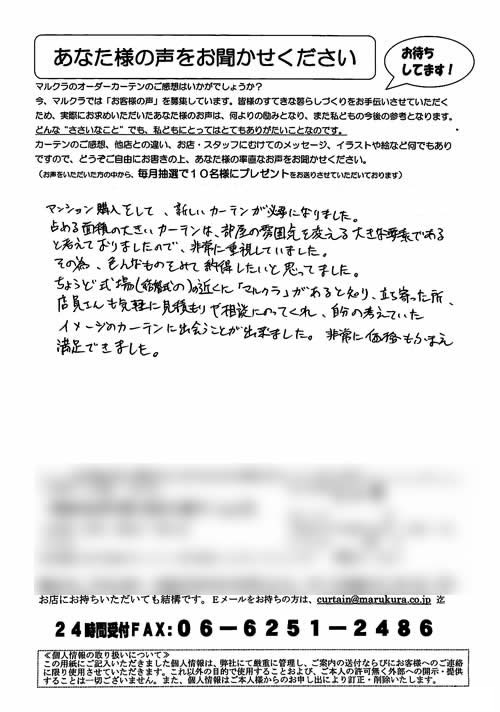 あなた様の声をお聞かせください
お待ち
してます！
マルクラのオーダーカーテンのご感想はいかがでしょうか？
今、マルクラでは「お客様の声」を募集しています。皆様のすてきな暮らしづくりをお手伝いさせていただく
ため、実際にお求めいただいたあなた様のお声は、何よりの励みとなり、また私どもの今後の参考となります。
どんな"ささいなこと"でも、私どもにとってはとてもありがたいことなのです。
カーテンのご感想、他店との違い、お店・スタッフにむけてのメッセージ、イラストや絵など何でもあり
ですので、どうぞご自由にお書きの上、あなた様の率直なお声をお聞かせください。
（お声をいただいた方の中から、毎月抽選で１０名様にプレゼントをお送りさせていただいております）
マンション購入をして、新しいカーテンが必要になりました。
占める面積の大きいカーテンは、部屋の雰囲気を変える大きな要素である
と考えておりましたので、非常に重視していました。
その為、色んなものをみて納得したいと思ってました。
ちょうど式場(結婚式の)の近くに「マルクラ」があると知り、立ち寄った所、
店員さんも気軽に見積もりや相談にのってくれ、自分の考えていた
イメージのカーテンに出会うことが出来ました。非常に価格もふまえ
満足できました。
お店にお持ちいただいても結構です。Ｅメールをお持ちの方は、curtain@marukura.co.jp 迄
２４時間受付ＦＡＸ：０６－６２５１－２４８６
≪個人情報の取り扱いについて≫
この用紙にご記入いただきました個人情報は、弊社にて厳重に管理し、ご案内の送付ならびにお客様へのご連絡
に限り使用させていただきます。これ以外の目的で使用することおよび、ご本人の許可無く外部への開示・提供
することは一切ございません。また、個人情報はご本人様からのお申し出により訂正・削除いたします。